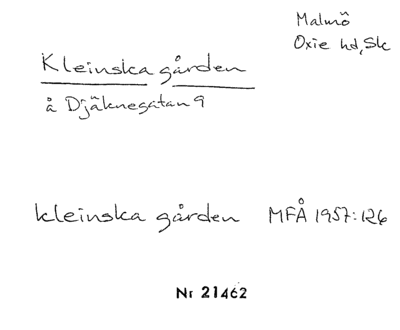 Malmö
Oxie hd, Sk
Kleinska gården
å Djäknegatan 9
kleinska gården MFÅ 1957:126
Nr 21462